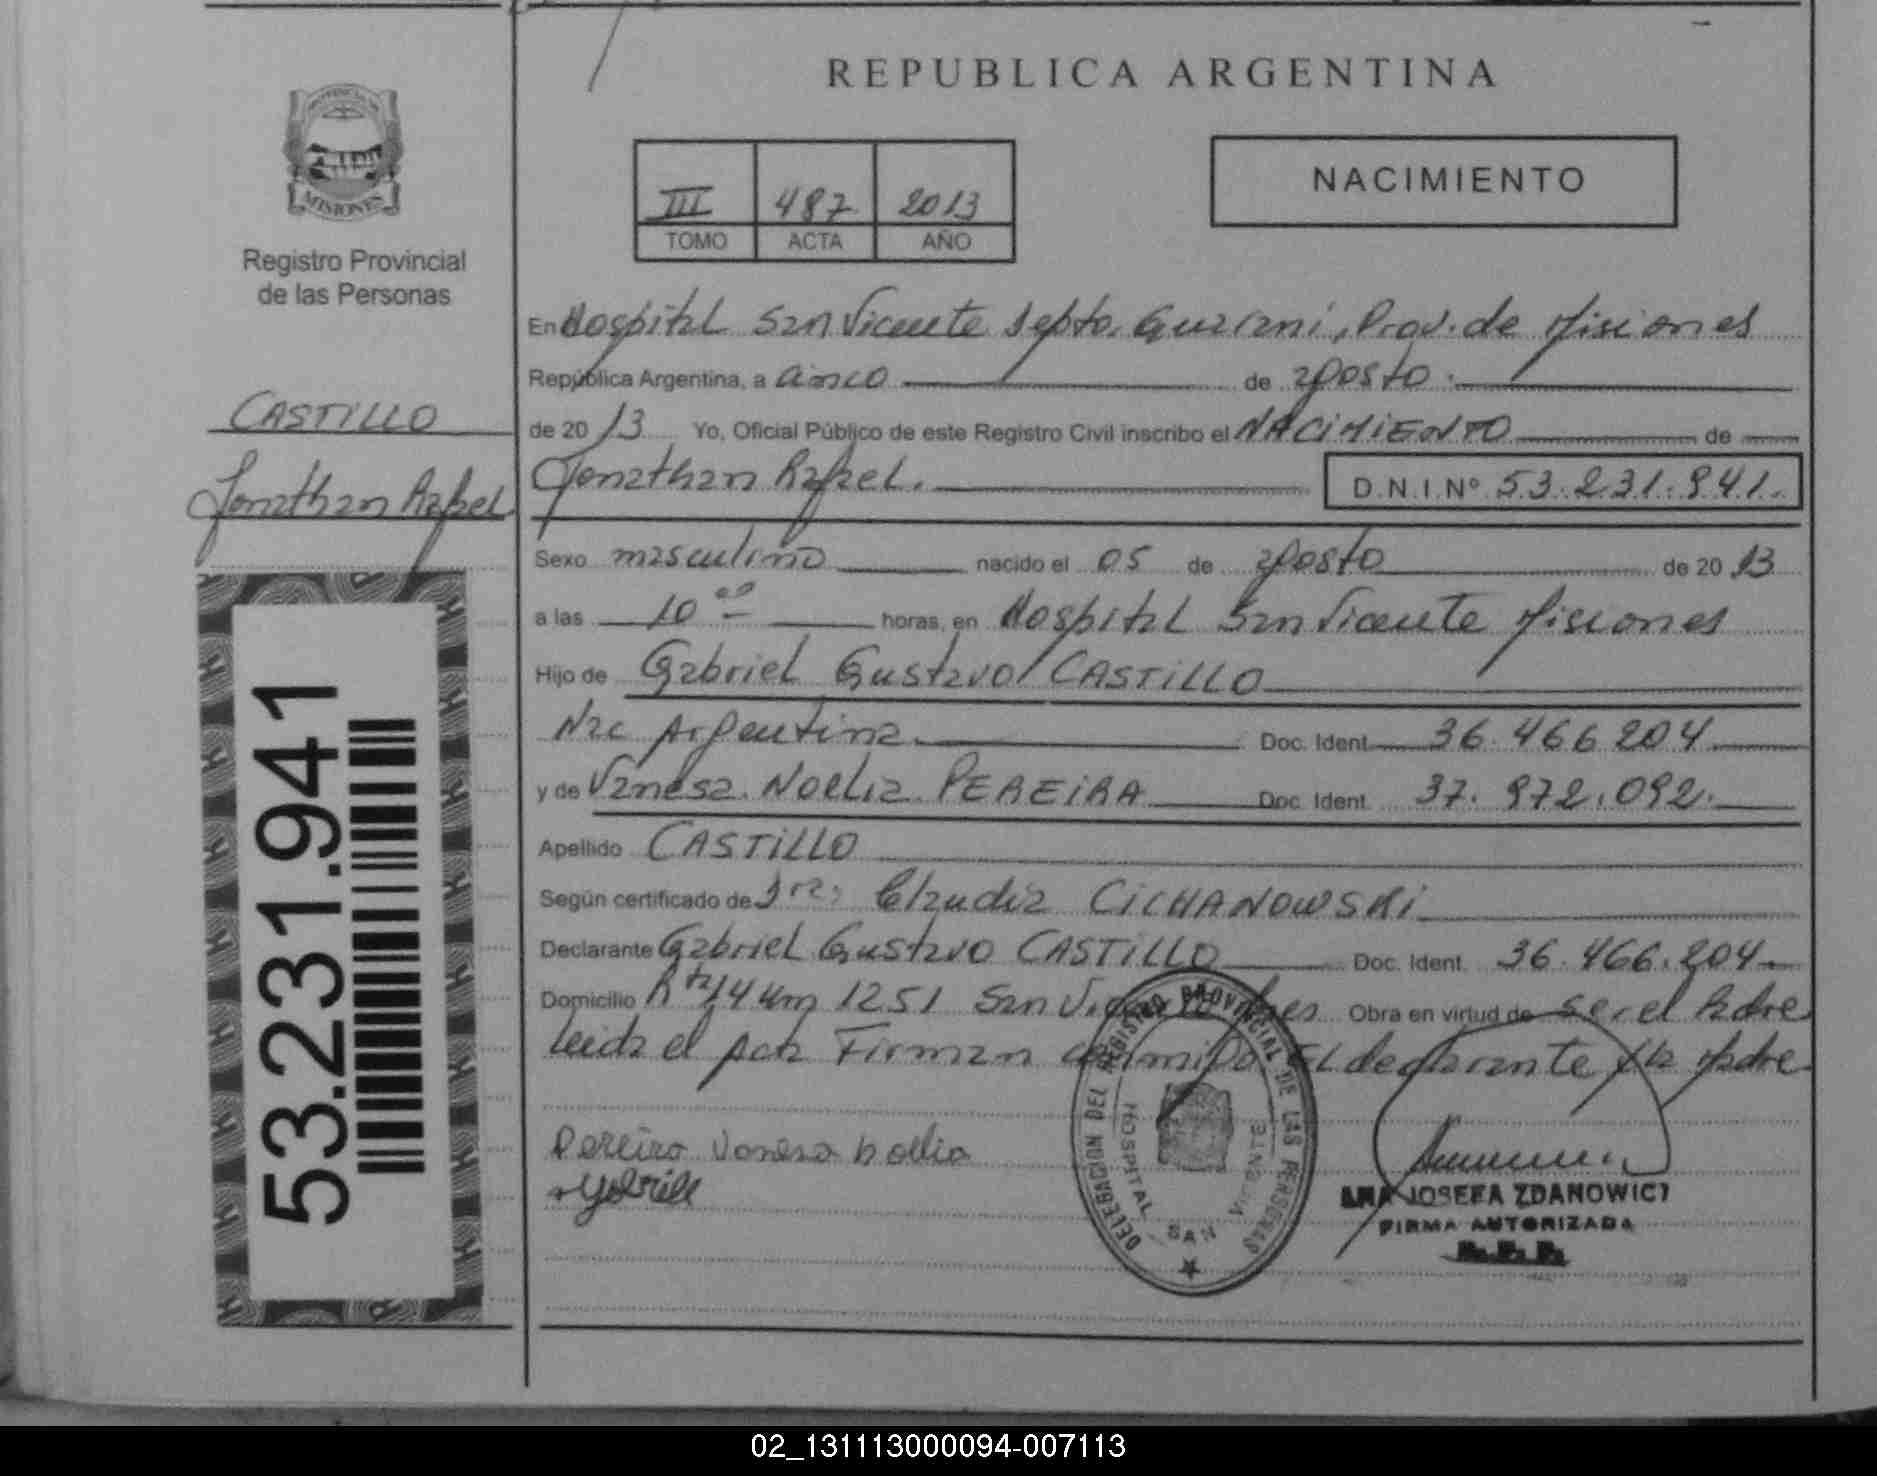 REPUBLICA ARGENTINA
PROVINCIA DE
MISIONES
Registro Provincial
de las Personas
III 487 2013
TOMO ACTA AÑO
NACIMIENTO
CASTILLO
Jonathan Rafael
53.231.941
En Hospital San Vicente Dpto. Guarani, Prov. de Misiones
República Argentina, a cinco de agosto
de 2013 Yo, Oficial Público de este Registro Civil inscribo el NACIMIENTO de
Jonathan Rafael. D.N.I.Nº 53.231.941.
Sexo masculino nacido el 05 de agosto de 2013
a las 10 00 horas, en Hospital San Vicente Misiones
Hijo de Gabriel Gustavo CASTILLO
Nac Argentina Doc. Ident. 36.466.204
y de Vanesa Noelia PEREIRA Doc. Ident. 37.972.092.
Apellido CASTILLO
Según certificado de Dra: Claudia CICHANOWSKI
Declarante Gabriel Gustavo CASTILLO Doc. Ident. 36.466.204
Domicilio Rta 14 Km 1251 San Vicente Mnes Obra en virtud de ser el Padre
Leida el Acta Firman conmigo El declarante y la Madre
Pereira Vanesa Noelia
DELEGACION DEL REGISTRO PROVINCIAL DE LAS PERSONAS
HOSPITAL SAN VICENTE
ANA JOSEFA ZDANOWICZ
FIRMA AUTORIZADA
R. P. P.
02_131113000094-007113